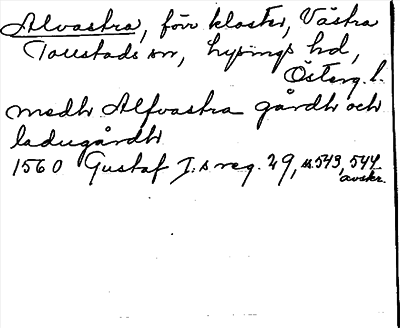 Alvastra, förr kloster, Västra
Tollstads sn, Lysings hd,
Österg. l.
medh Alfvastra gårdh och
ladugårdh
1560 Gustaf I:s reg. 29, s. 543, 544
avskr.